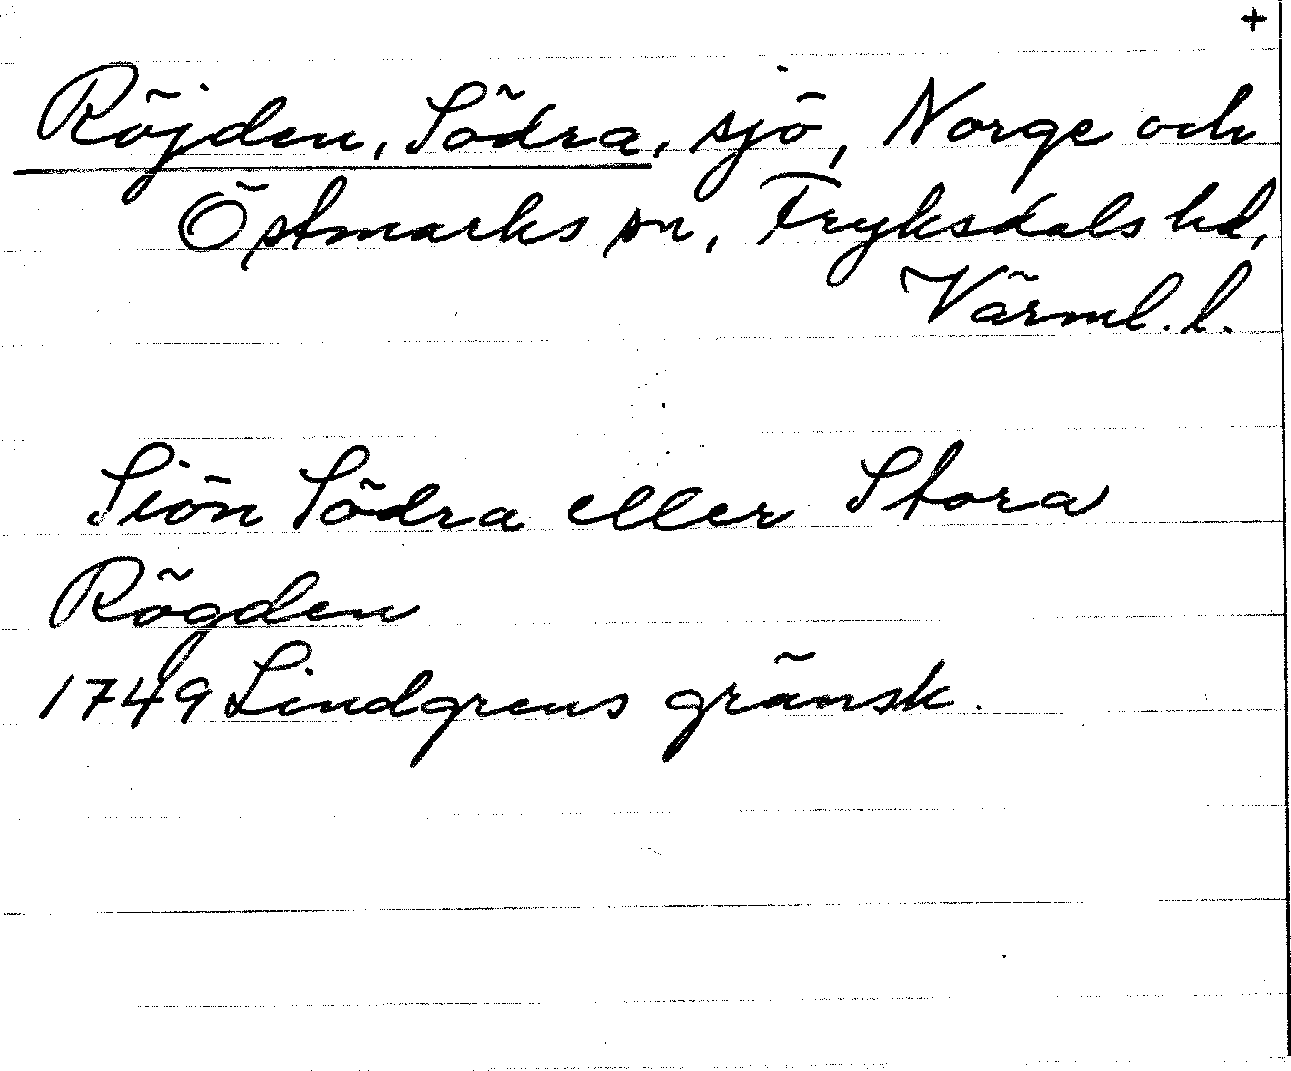 +
Röjden, Södra, sjö, Norge och
Östmarks sn, Fryksdals hd,
Värml. l.
Siön Södra eller Stora
Rögden
1749 Lindgrens gränsk.